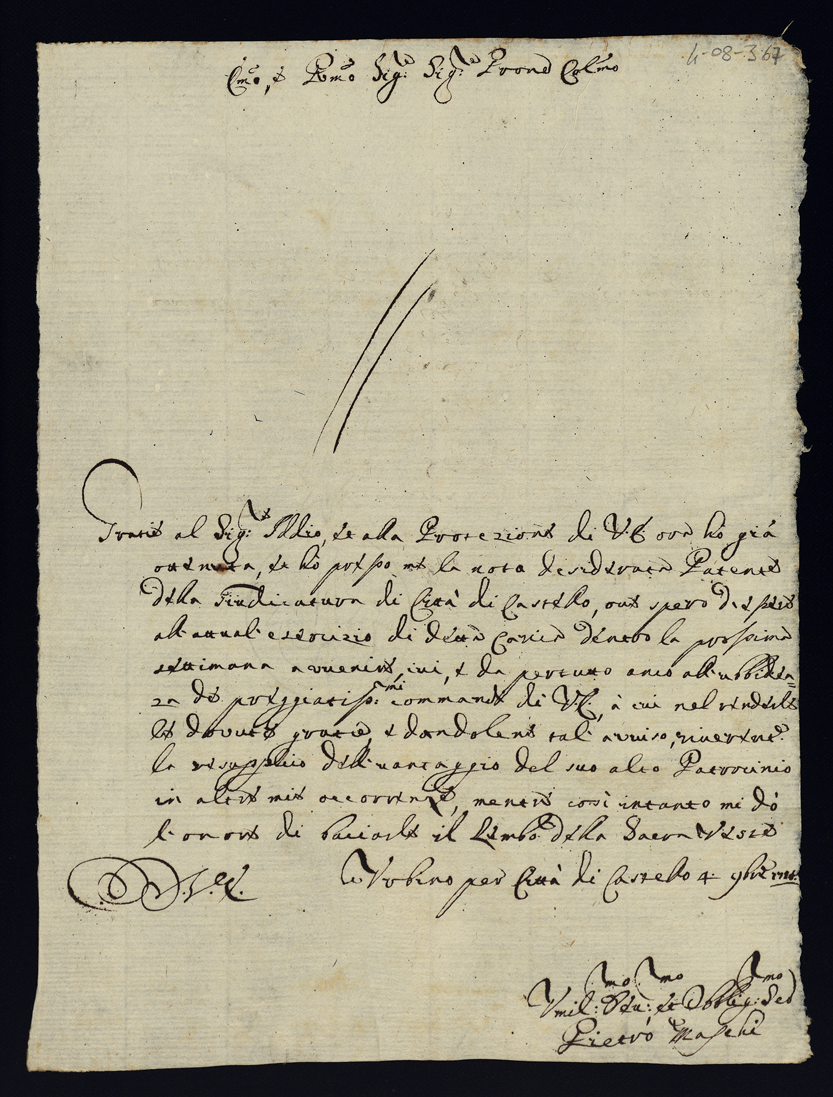 4-08-367
Emo, e Rmo Sigr: Sigr: Prone Colmo
Gratie al Sigr: Iddio, et alla Protezione di V.E. ora hò già
ottenuta, et hò presso me la nota desiderata Patente
della Giudicatura di Città di Castello, ove spero d'essere
all'attual esercizio di detta Carica dentro la prossima
settimana avvenire, ivi, e da per tutto anco all'ubbidien=
za de' preggiatissmi: commandi di V.E., à cui nel renderle
le dovute gratie, e dandolene tale avviso, riverente:
la resupplico dell'vantaggio del suo alto Patrocinio
in altre mie occorrenze, mentre così intanto mi dò
l'onore di baciarle il Lembo della Sacra Veste
D. V. E.
Urbino per Città di Castello 4 9bre
Umil:mo Dev:mo et Obblig:mo Sed
Pietro Maschi